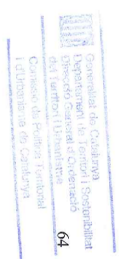 Generalitat de Catalunya
Departament de Territori i Sostenibilitat
Direcció General d'Ordenació
del Territori i Urbanisme
Comissió de Política Territorial
i d'Urbanisme de Catalunya
64